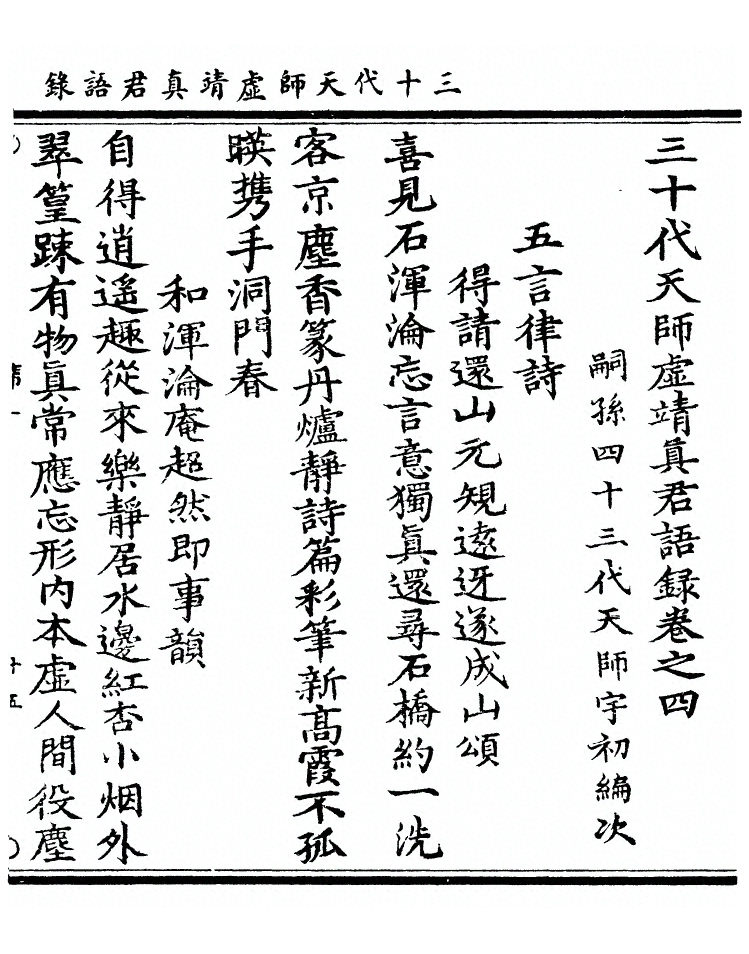 三十代天師虛靖真君語錄
三十代天師虛靖真君語録卷之四
嗣孫四十三代天師宇初編次
五言律詩
得請還山元規遠迓遂成山頌
喜見石渾淪忘言意獨眞還尋石橋約一洗
客京塵香篆丹爐靜詩篇彩筆新高霞不孤
暎携手洞門春
和渾淪庵超然即事韻
自得逍遥趣從來樂靜居水邊紅杏小烟外
翠篁踈有物眞常應忘形内本虛人間役塵